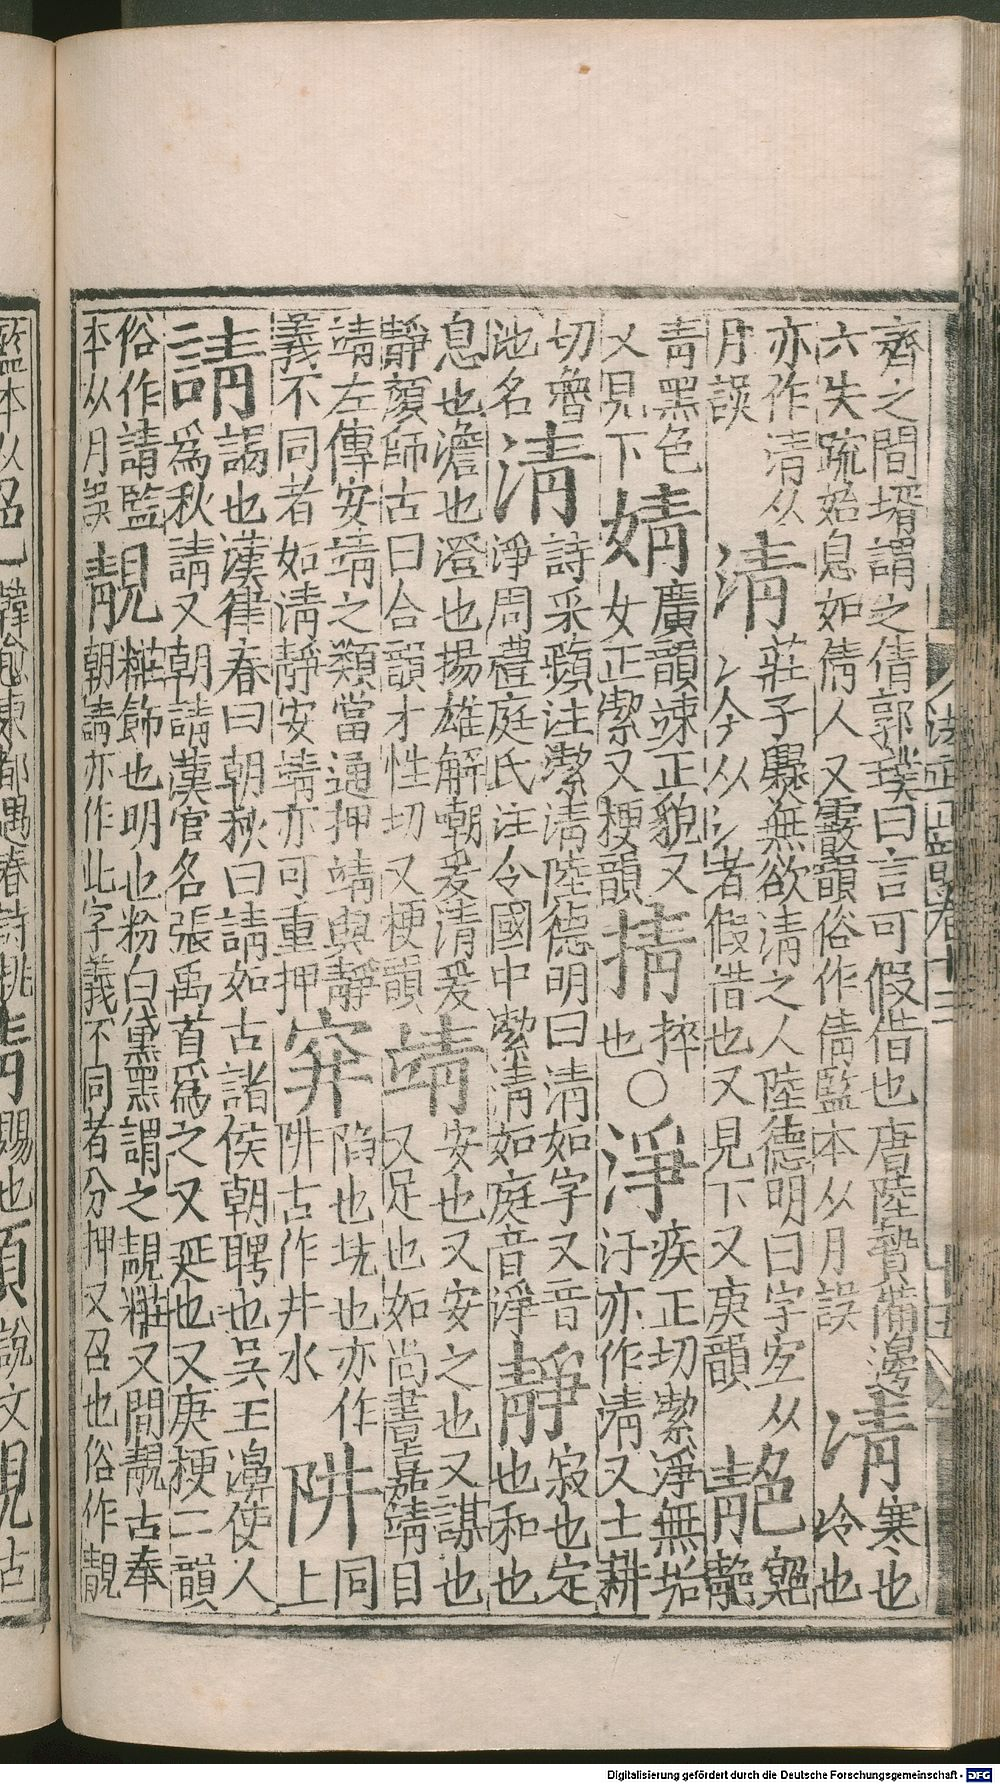 齊之間壻謂之倩郭璞曰言可假借也唐陸贄備邊
六失疏始息如倩人又震韻俗作倩監本从月誤
凊
寒也
冷也
亦作清从
月誤
清
莊子㬥無欲清之人陸德明曰字宜从
冫今从氵者假借也又見下又庚韻
䨼
青黑色
又見下
婧
廣韻竦正貌又
女正潔又梗韻
掅
捽
也
○
淨
疾正切潔淨無垢
汙亦作清又士耕
切魯
池名
清
詩采蘋注潔清陸德明曰清如字又音
淨周禮庭氏注令國中潔清如庭音淨
靜
寂也定
也和也
息也澹也澄也揚雄解嘲爰清爰
靜顏師古曰合韻才性切又梗韻
靖
安也又安之也又謀也
又足也如尚書嘉靖自
靖左傳安靖之類當通押靖與靜
義不同者如清靜安靖亦可重押
穽
陷也坑也亦作
阱古作井水
阱
同
上
請
謁也漢律春曰朝秋曰請如古諸侯朝聘也吳王濞使人
爲秋請又朝請漢官名張禹首爲之又延也又庚梗二韻
俗作請監
本从月誤
靚
糚飾也明也粉白黛黑謂之靚糚又閒靚古奉
朝請亦作此字義不同者分押又召也俗作靚
Digitalisierung gefördert durch die Deutsche Forschungsgemeinschaft - DFG